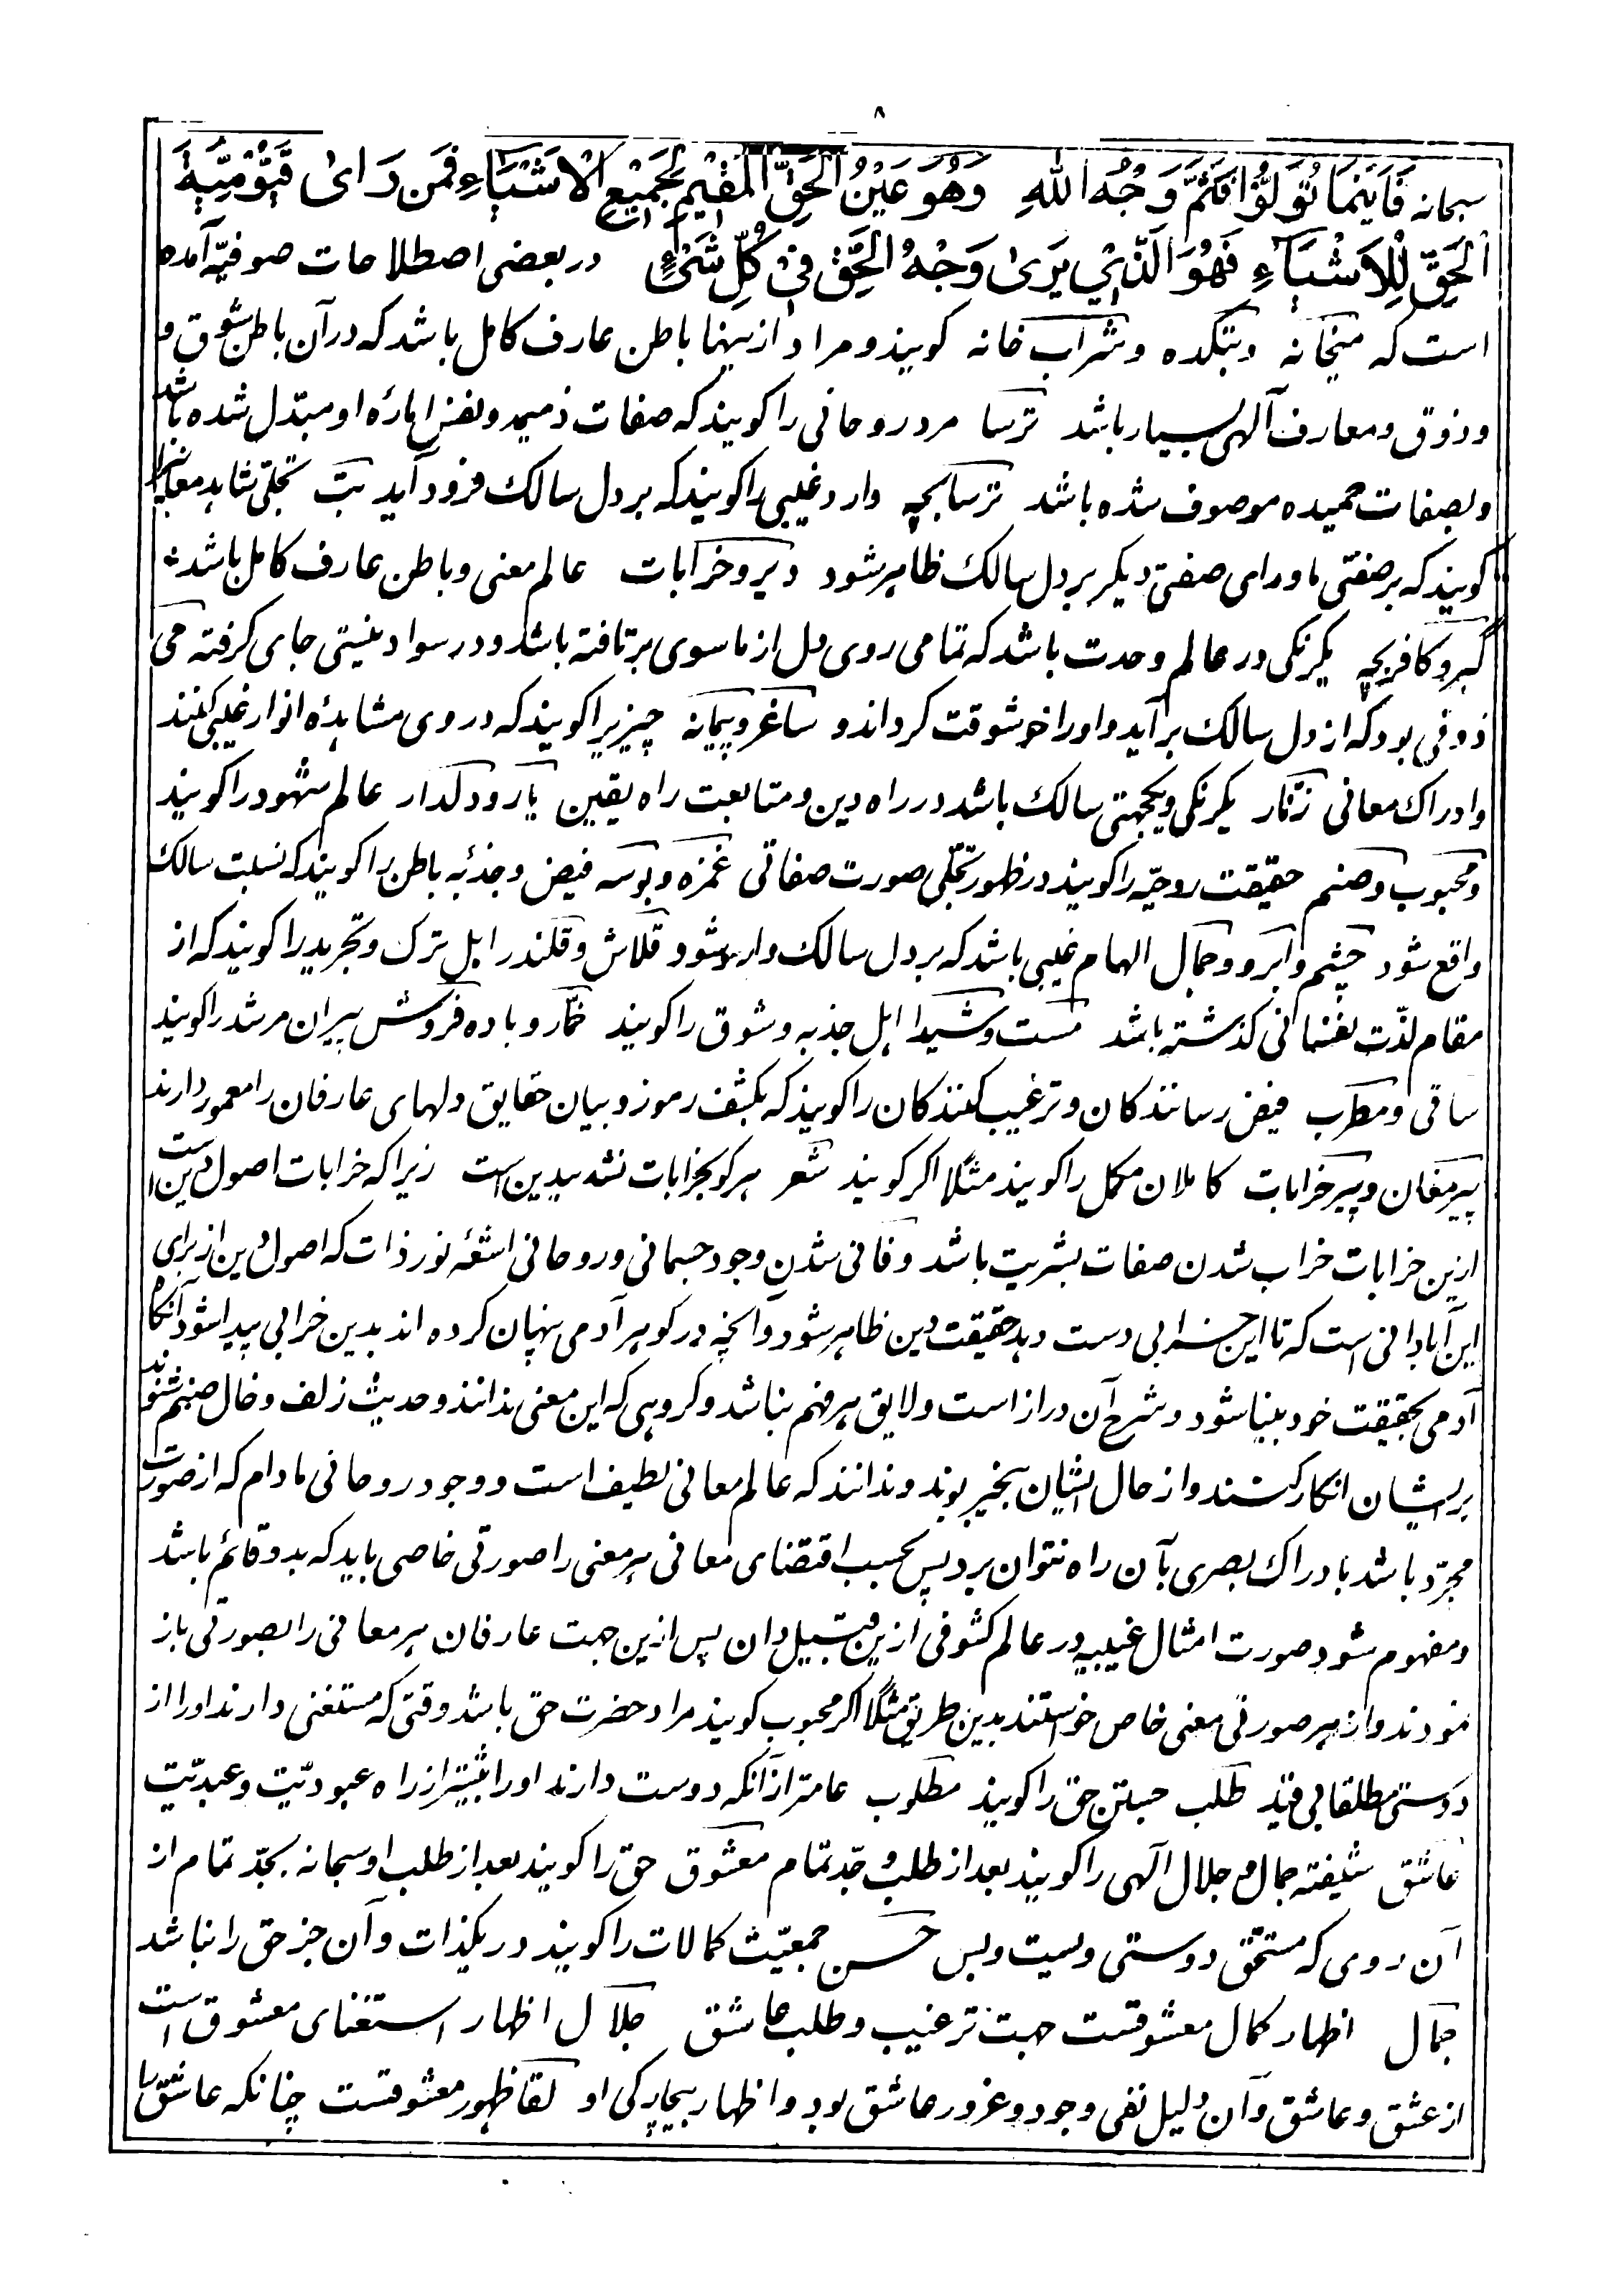 ۸
سبحانه فَاَیْنَمَا تُوَلُّوْا فَثَمَّ وَجْهُ اللهِ وَهُوَ عَیْنُ الْحَقِّ الْمُقِیْمِ بِجَمِیْعِ الْاَشْیَاءِ فَمَن رَاىٰ قَیُّوْمِیَّةَ
الْحَقِّ لِلْاَشْیَاءِ فَهُوَ الَّذِیْ یَرىٰ وَجْهُ الْحَقِّ فِیْ کُلِّ شَیْءٍ در بعضی اصطلاحات صوفیّه آمده
است که میخانه و بتکده و شراب خانه کویند و مراد ازینها باطن عارف کامل باشد که در آن باطن شوق و
و ذوق و معارف آلهی بسیار باشد ترسا مرد روحانی را کویند که صفات ذمیمه و نفس اماره او مبدّل شده باشد
و بصفات حمیده موصوف شده باشد ترسابچه وارد غیبی را کویند که بر دل سالک فرود آید بت تجلی شاهد معانی را
کویند که بر صفتی ماورای صفتی دیکر بر دل سالک ظاهر شود دیر و خرابات عالم معنی و باطن عارف کامل باشد
کبر و کافر بچه یکرنکی در عالم وحدت باشد که تمامی روی دل از ماسوی برتافته باشد و در سواد نیستی جای کرفته می
ذوقی بود که از دل سالک برآید و او را خوشوقت کرداند و ساغر و پیمانه چیزیرا کویند که در وی مشاهدۀ انوار غیبی کنند
و ادراک معانی زنّار یکرنکی و یکجهتی سالک باشد در راه دین و متابعت راه یقین یار و دلدار عالم شهود را کویند
و محبوب و صنم حقیقت روحیّه را کویند در ظهور تجلّی صورت صفاتی غمزه و بوسه فیض و جذبۀ باطن را کویند که نسبت سالک
واقع شود چشم و ابرو و جمال الهام غیبی باشد که بر دل سالک وارد شود قلاش و قلندر اهل ترک و تجرید را کویند که از
مقام لذّت نفسانی کذشته باشد مست و شیدا اهل جذبه و شوق را کویند خمّار و باده فروش پیران مرشد را کویند
ساقی و مطرب فیض رسانندکان و ترغیب کنندکان را کویند که بکشف رموز و بیان حقایق دلهای عارفان را معمور دارند
پیر مغان و پیر خرابات کاملان مکمل را کویند مثلا اکر کویند شعر هر کو بخرابات نشد بیدین است زیرا که خرابات اصول دین است
ازین خرابات خراب شدن صفات بشریت باشد و فانی شدن وجود جسمانی و روحانی اشعّۀ نور ذات که اصول دین از برای
این آبادانی است که تا این خرابی دست دهد حقیقت دین ظاهر شود و آنچه در کوهر آدمی پنهان کرده اند بدین خرابی پیدا شود آنکاه
آدمی بحقیقت خود بینا شود و شرح آن دراز است و لایق هر فهم نباشد و کروهی که این معنی ندانند و حدیث زلف و خال صنم شنوند
بر ایشان انکار کنند و از حال ایشان بیخبر بوند و ندانند که عالم معانی لطیف است و وجود روحانی مادام که از صورت
مجرّد باشد بادراک بصری بآن راه نتوان برد پس بحسب اقتضای معانی هر معنی را صورتی خاصی باید که بدو قائم باشد
و مفهوم شود صورت امثال غیبیه در عالم کشوفی ازین قبیل دان پس ازین جهت عارفان هر معانی را بصورتی باز
نمودند و از هر صورتی معنی خاص خواستند بدین طریق مثلا اکر محبوب کویند مراد حضرت حق باشد وقتی که مستغنی دارند او را از
دوستی مطلقا بی قید طلب جستن حق را کویند مطلوب عامتر از آنکه دوست دارند او را بیشتر از راه عبودیّت و عبدیّت
عاشق شیفته جمال و جلال آلهی را کویند بعد از طلب و جدّ تمام معشوق حق را کویند بعد از طلب او سبحانه بجدّ تمام از
آن روی که مستحق دوستی ویست و بس حسن جمعیّت کمالات را کویند در یکذات و آن جز حق را نباشد
جمال اظهار کمال معشوقست جهت ترغیب و طلب عاشق جلال اظهار استغنای معشوق است
از عشق و عاشق و آن دلیل نفی وجود و غرور عاشق بود و اظهار بیچارکی او لقا ظهور معشوقست چنانکه عاشق را